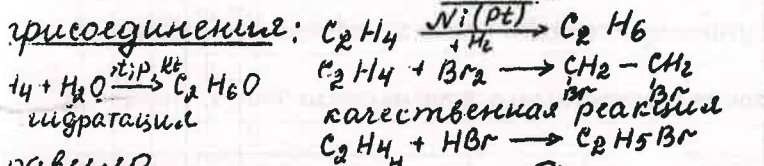 присоединения: C2H4 Ni(Pt) + H2 → C2H6
H4 + H2O t;p, kt → C2H6O
C2H4 + Br2 → CH2 – CH2
Br Br
гидратация
качественная реакция
C2H4 + HBr → C2H5Br